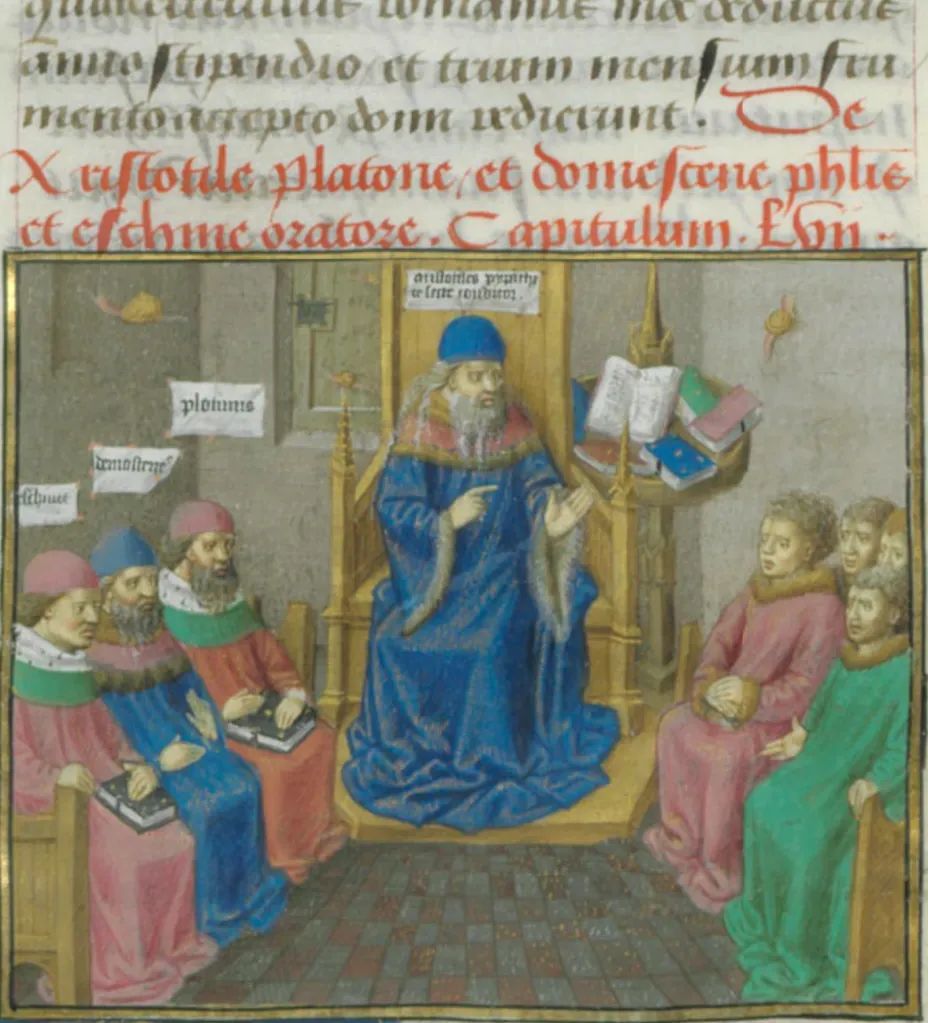 anno stipendio et trium mensium fru
mento accepto domi redierunt. De
Aristotile Platone, et domescene phlis
et eschine oratore. Capitulum. Lvii.
aristotiles
te secte conditor.
plotinus
demostene⁹
eschines